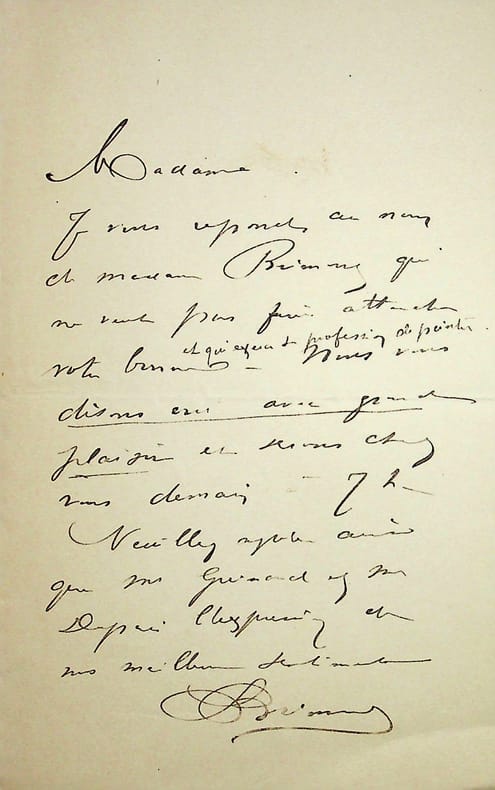 Madame
Je vous reponds au nom
de madame qui
ne veut pas faire attendre
votre
et qui exerce la profession de peintre.
Nous vous
disons oui avec grand
plaisir et serons chez
vous demain 7 h
Veuillez agréer ainsi
que Mr et Mr
l'expression de
nos meilleurs sentiments